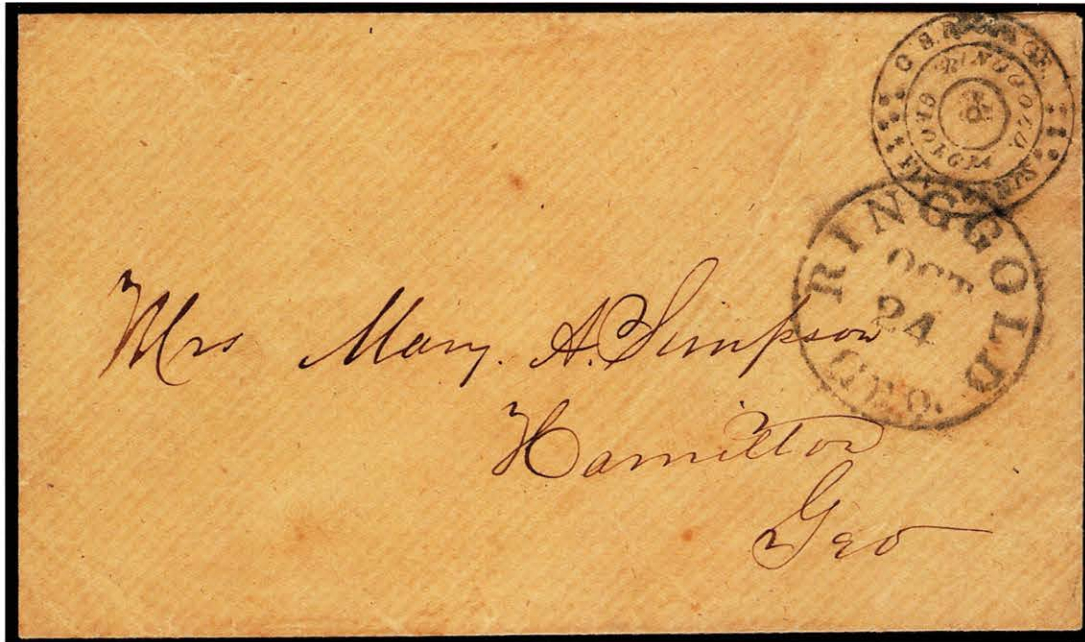 C.S. POSTAGE.
RINGGOLD,
GEORGIA
RINGGOLD
OCT
24
GEO.
Mrs Mary. A. Simpson
Hamilton
Geo